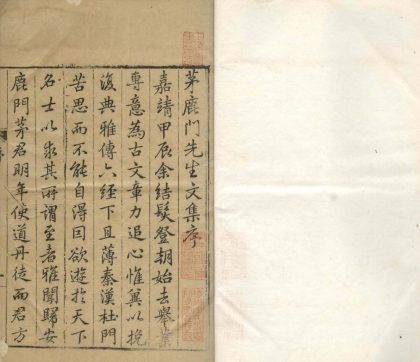 茅鹿門先生文集序
嘉靖甲辰余結髮登朝始去舉業
專意為古文章力追心惟冀以挽
復典雅傳六經下且薄秦漢杜門
苦思而不能自得曰欲遊於天下
名士以求其所謂至者雅聞歸安
鹿門茅君明年使道丹徒而君方